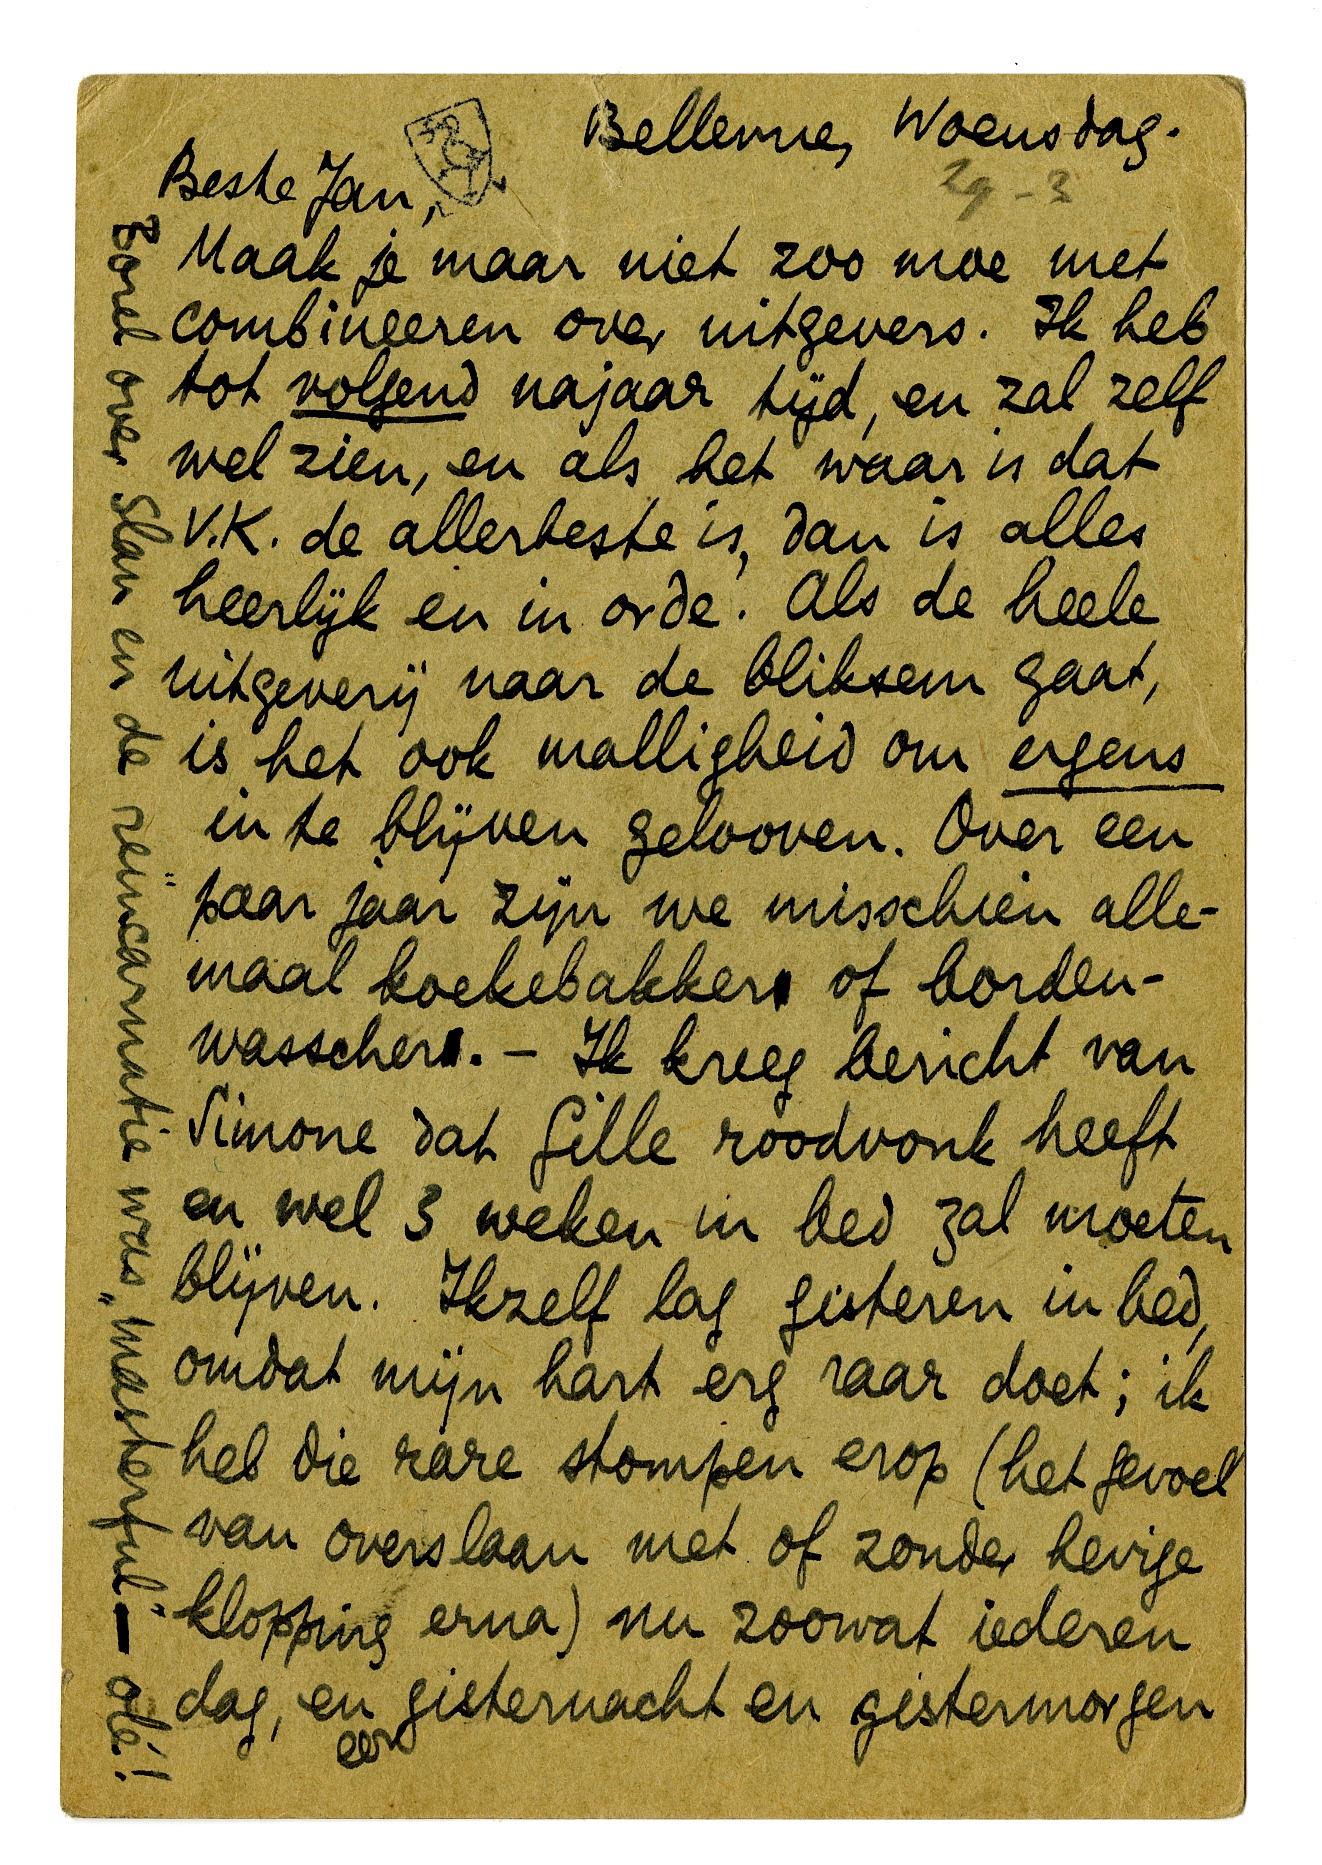 Bellevue, Woensdag.
29-3
Beste Jan,
Maak je maar niet zoo moe met
combineeren over uitgevers. Ik heb
tot volgend najaar tijd, en zal zelf
wel zien, en als het waar is dat
V.K. de allerbeste is, dan is alles
heerlijk en in orde. Als de heele
uitgeverij naar de bliksem gaat,
is het ook malligheid om ergens
in te blijven gelooven. Over een
paar jaar zijn we misschien alle-
maal koekebakker of borden-
wasscher. – Ik kreeg bericht van
Simone dat Gille roodvonk heeft
en wel 3 weken in bed zal moeten
blijven. Ikzelf lag gisteren in bed,
omdat mijn hart erg raar doet; ik
heb die rare stompen erop (het gevoel
van overslaan met of zonder hevige
klopping erna) nu zoowat iederen
dag, en gisternacht en gistermorgen
een
Borel over Slau en de reïncarnatie was "masterful" — olé!